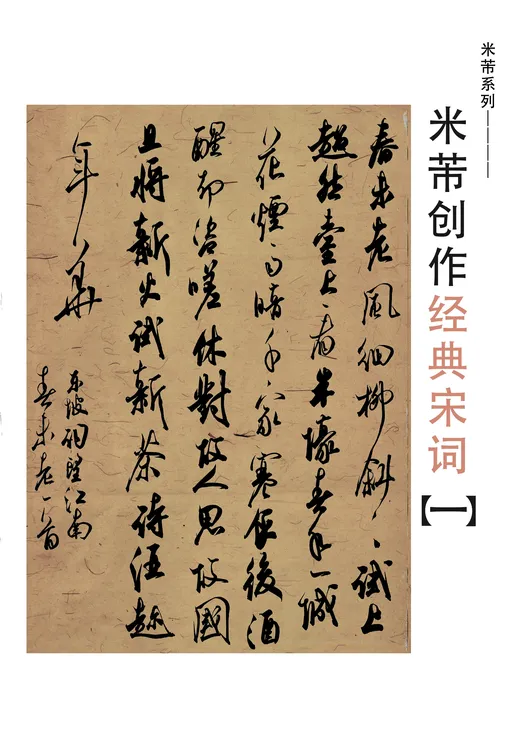 米芾系列————
米芾创作经典宋词
【一】
春未老風細柳斜〻試上
超然臺上看半壕春水一城
花煙雨暗千家寒食後酒
醒却咨嗟休對故人思故國
且將新火試新茶詩酒趁
年華
东坡词望江南
春未老一首